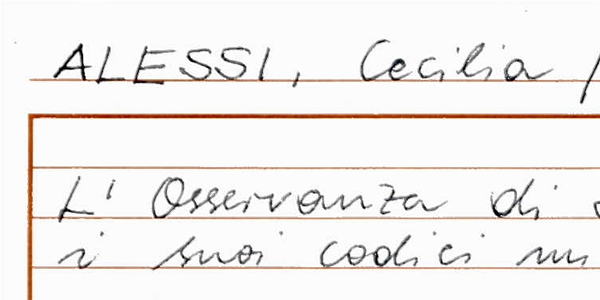 ALESSI, Cecilia /
L' Osservanza di
i suoi codici mi